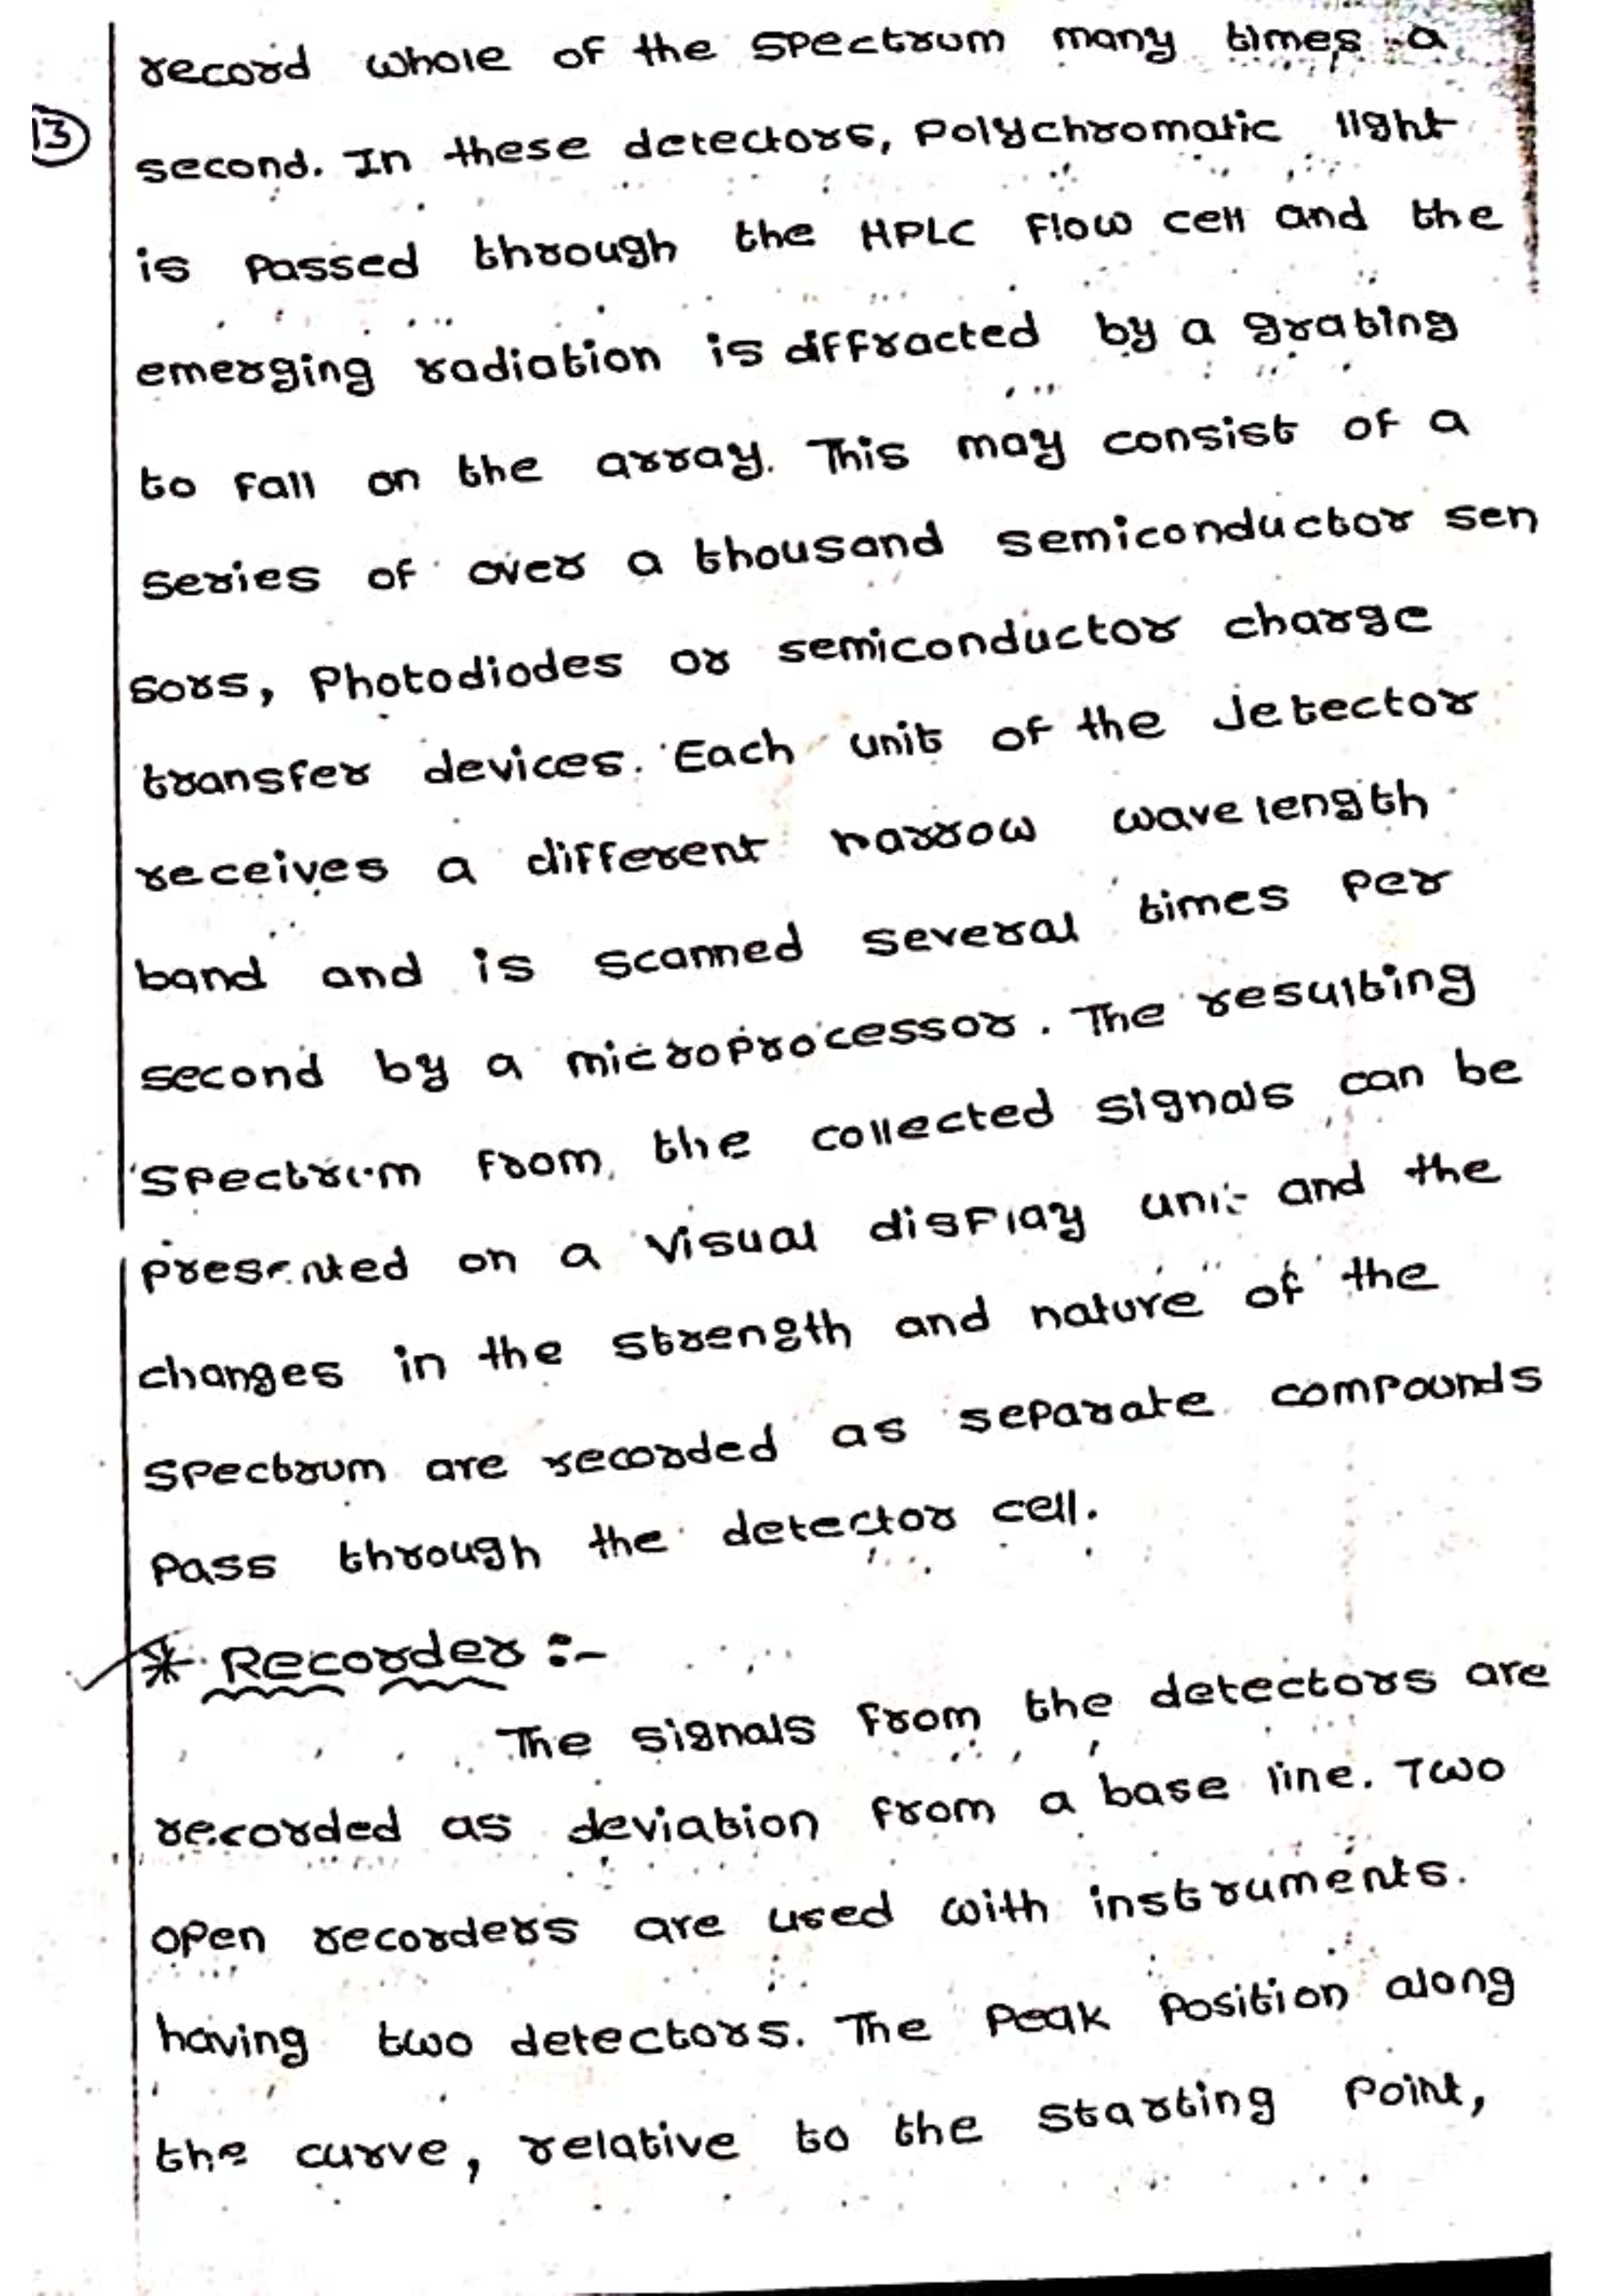 record whole of the spectrum many times a
13
second. In these detectors, polychromatic light
is passed through the HPLC flow cell and the
emerging radiation is diffracted by a grating
to fall on the array. This may consist of a
series of over a thousand semiconductor sen
sors, photodiodes or semiconductor charge
transfer devices. Each unit of the detector
receives a different narrow wavelength
band and is scanned several times per
second by a microprocessor. The resulting
spectrum from the collected signals can be
presented on a visual display unit and the
changes in the strength and nature of the
spectrum are recorded as separate compounds
pass through the detector cell.
* Recorder :-
The signals from the detectors are
recorded as deviation from a base line. Two
open recorders are used with instruments.
having two detectors. The peak position along
the curve, relative to the starting point,